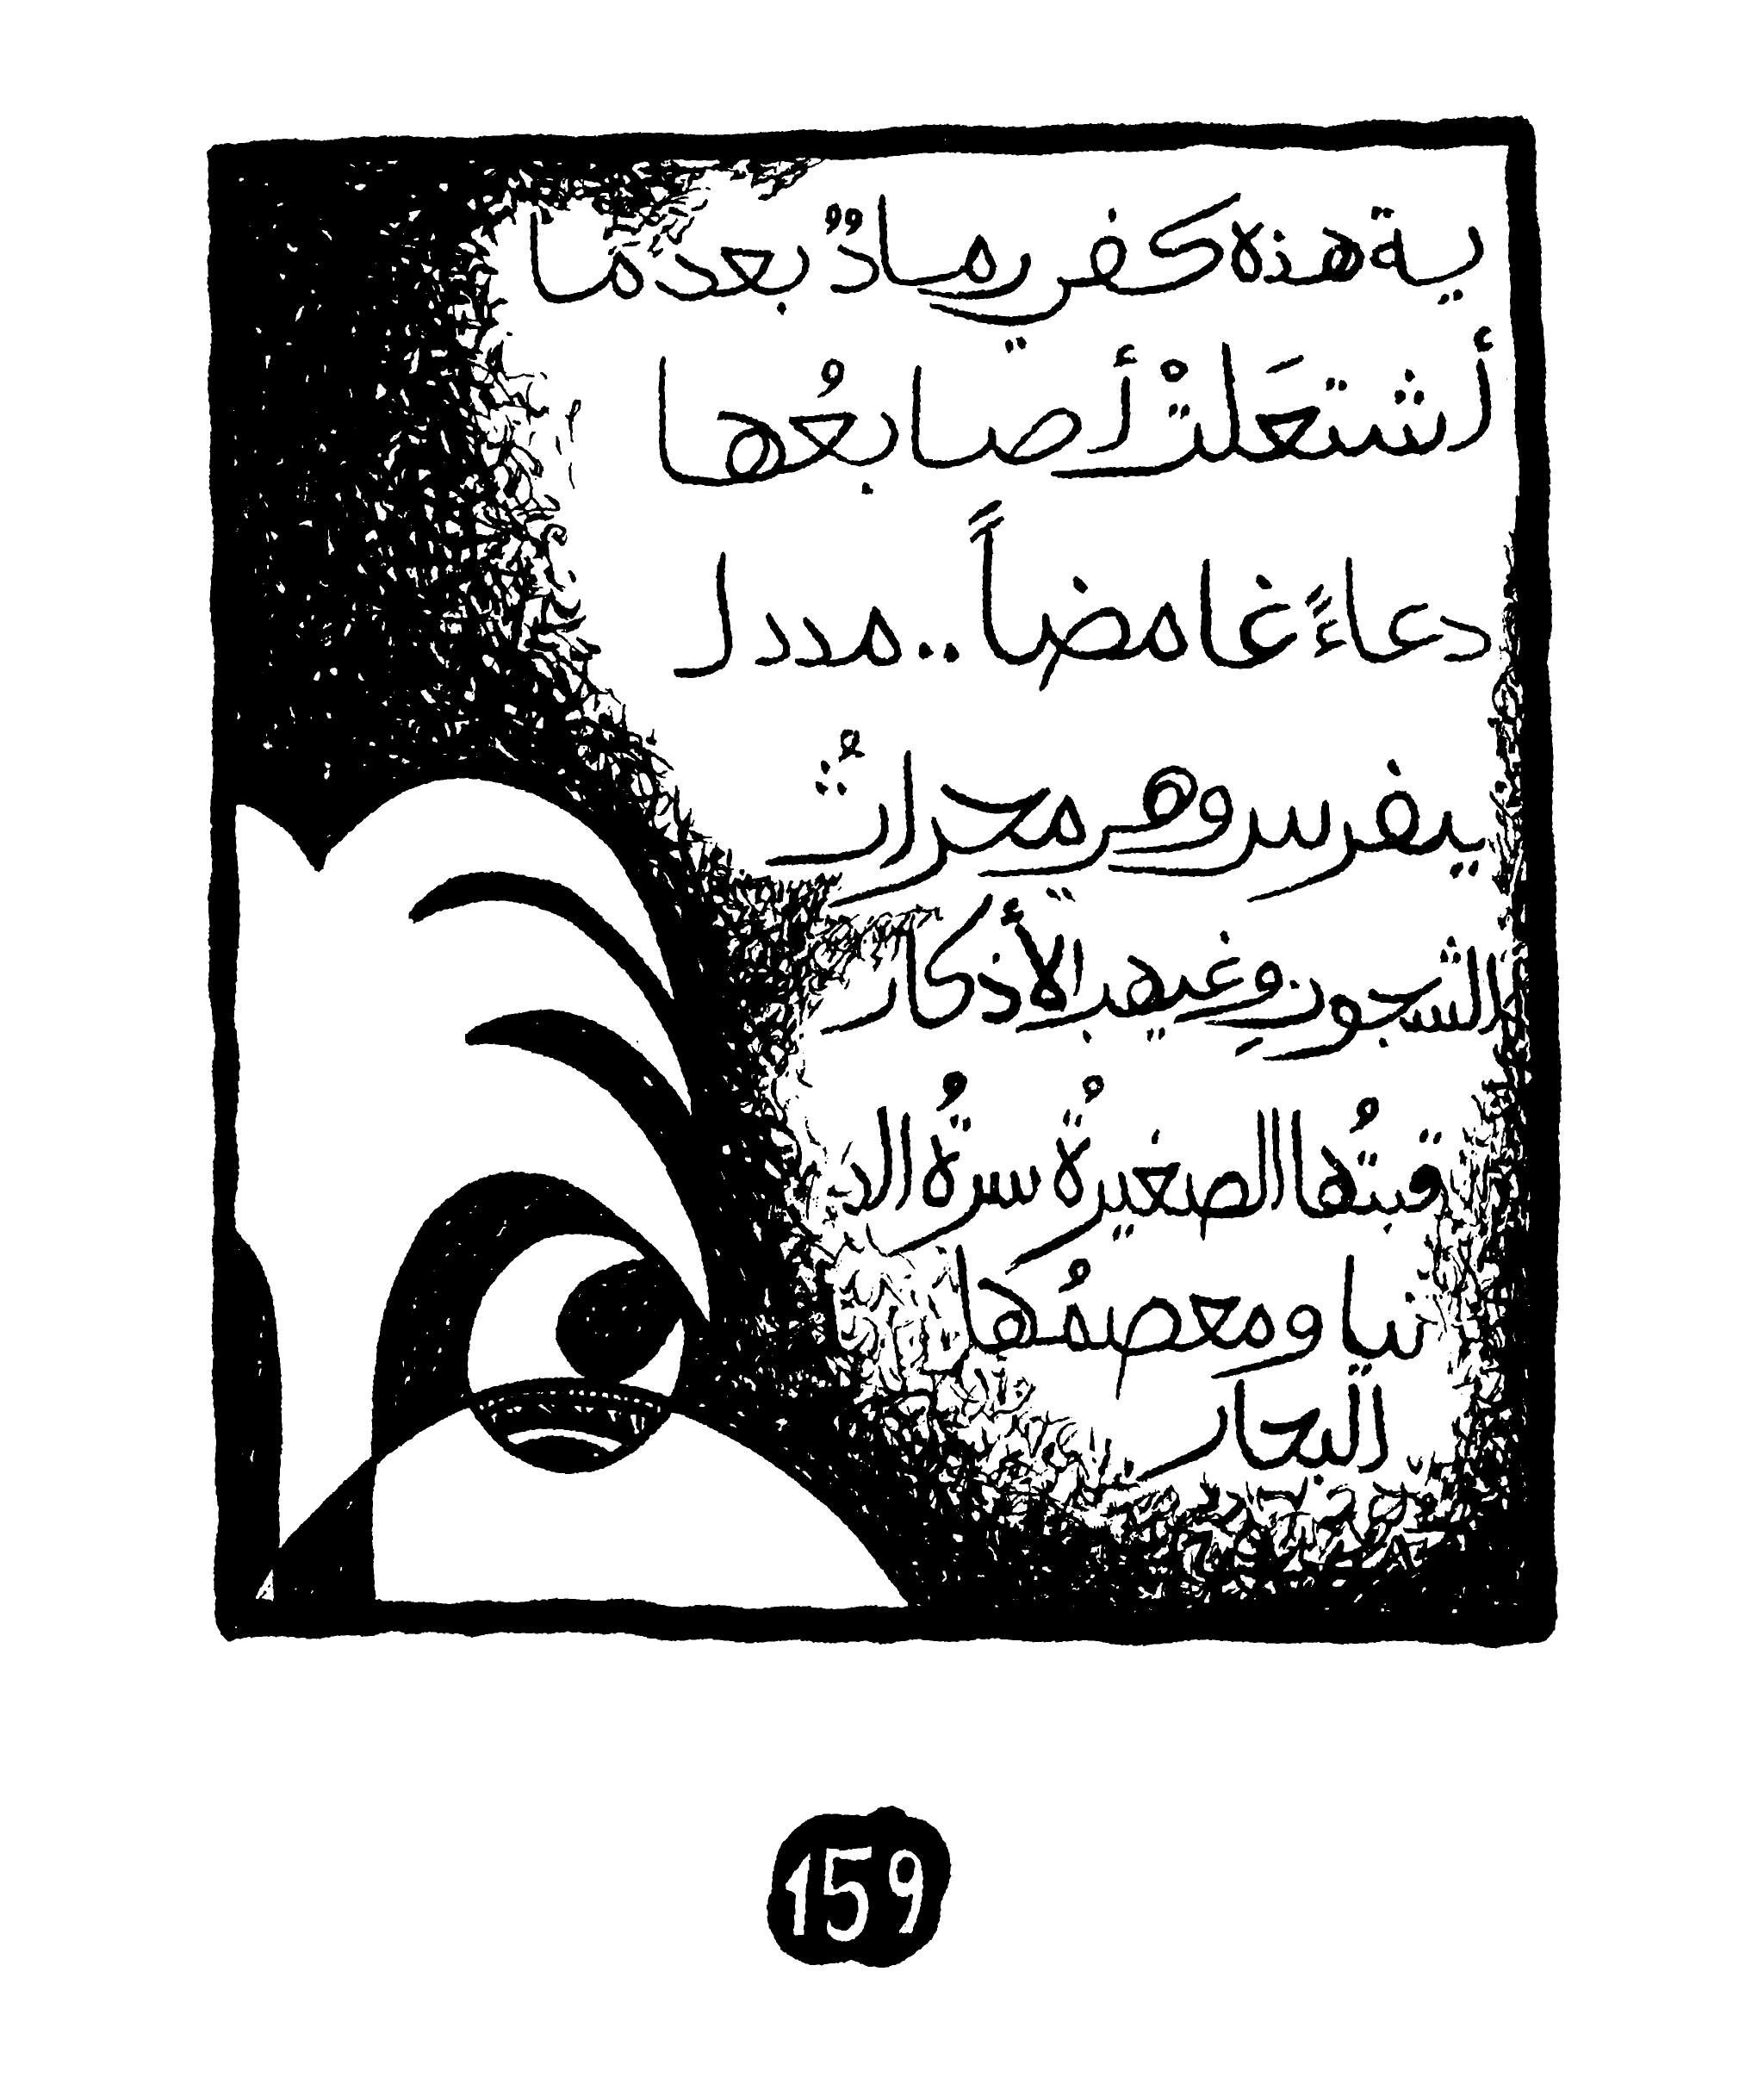 ية هذه كفي رمادٌ بعدمَا
أشتعَلتْ أصابعُها
دعاءً غامضاً .. مددا
يفرسي وهي محراثُ
السجودِ. وغيهب الأذكار
قبتُها الصغيرةُ سرةُ الد
نيا ومعصمُها
البحار
159